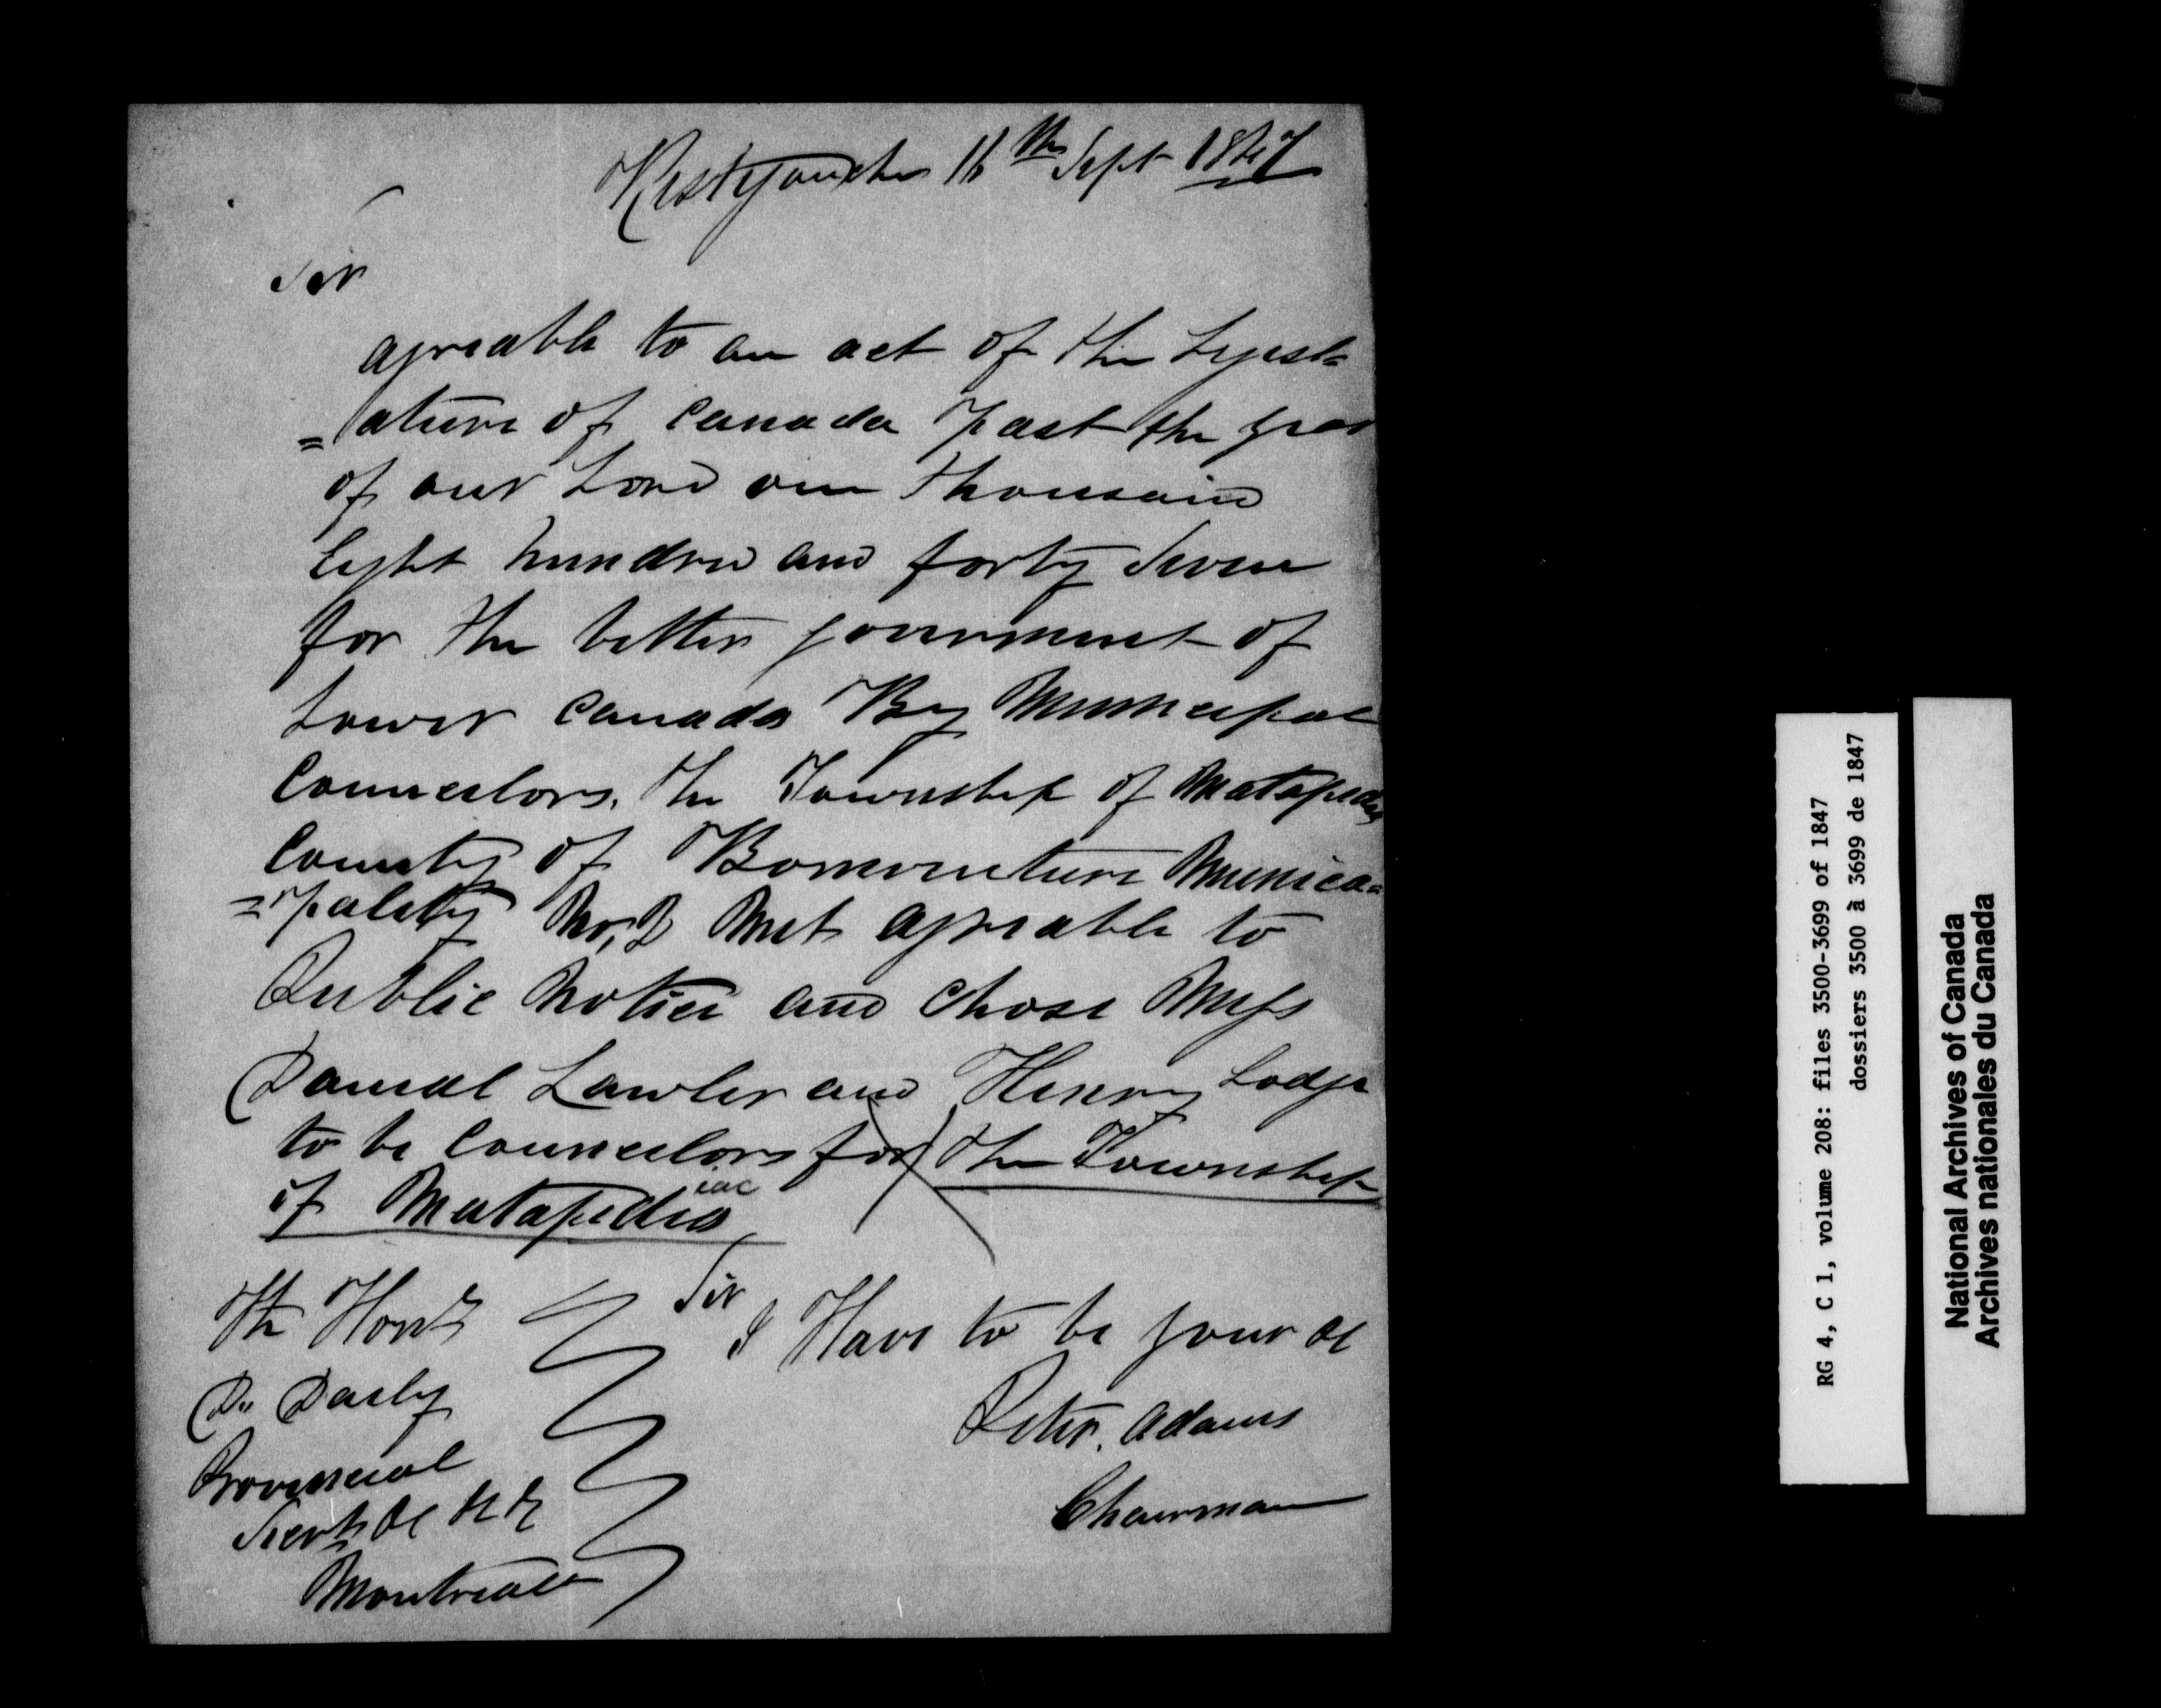 Restigouche 16th Sept 1847
Sir
agreable to an act of the Legesl=
=ature of Canada past the year
of our Lord one thousand
Eight hundred and forty Seven
for the better government of
Lower Canada By Municipal
Councelors, the Township of Matapedia
County of Bonaventure Munici=
=pality No, 2 Met agreable to
Public Notice and chose Mess
Daniel Lawler and Henry Lodge
to be Councelors for the Township
of Matapediac
Sir
I Have to be your &c
Peter. Adams
Chairman
The Honl
D. Daily
Provincial
Secrt &c &c
Montreal
RG 4, C 1, volume 208: files 3500-3699 of 1847
dossiers 3500 à 3699 de 1847
National Archives of Canada
Archives nationales du Canada